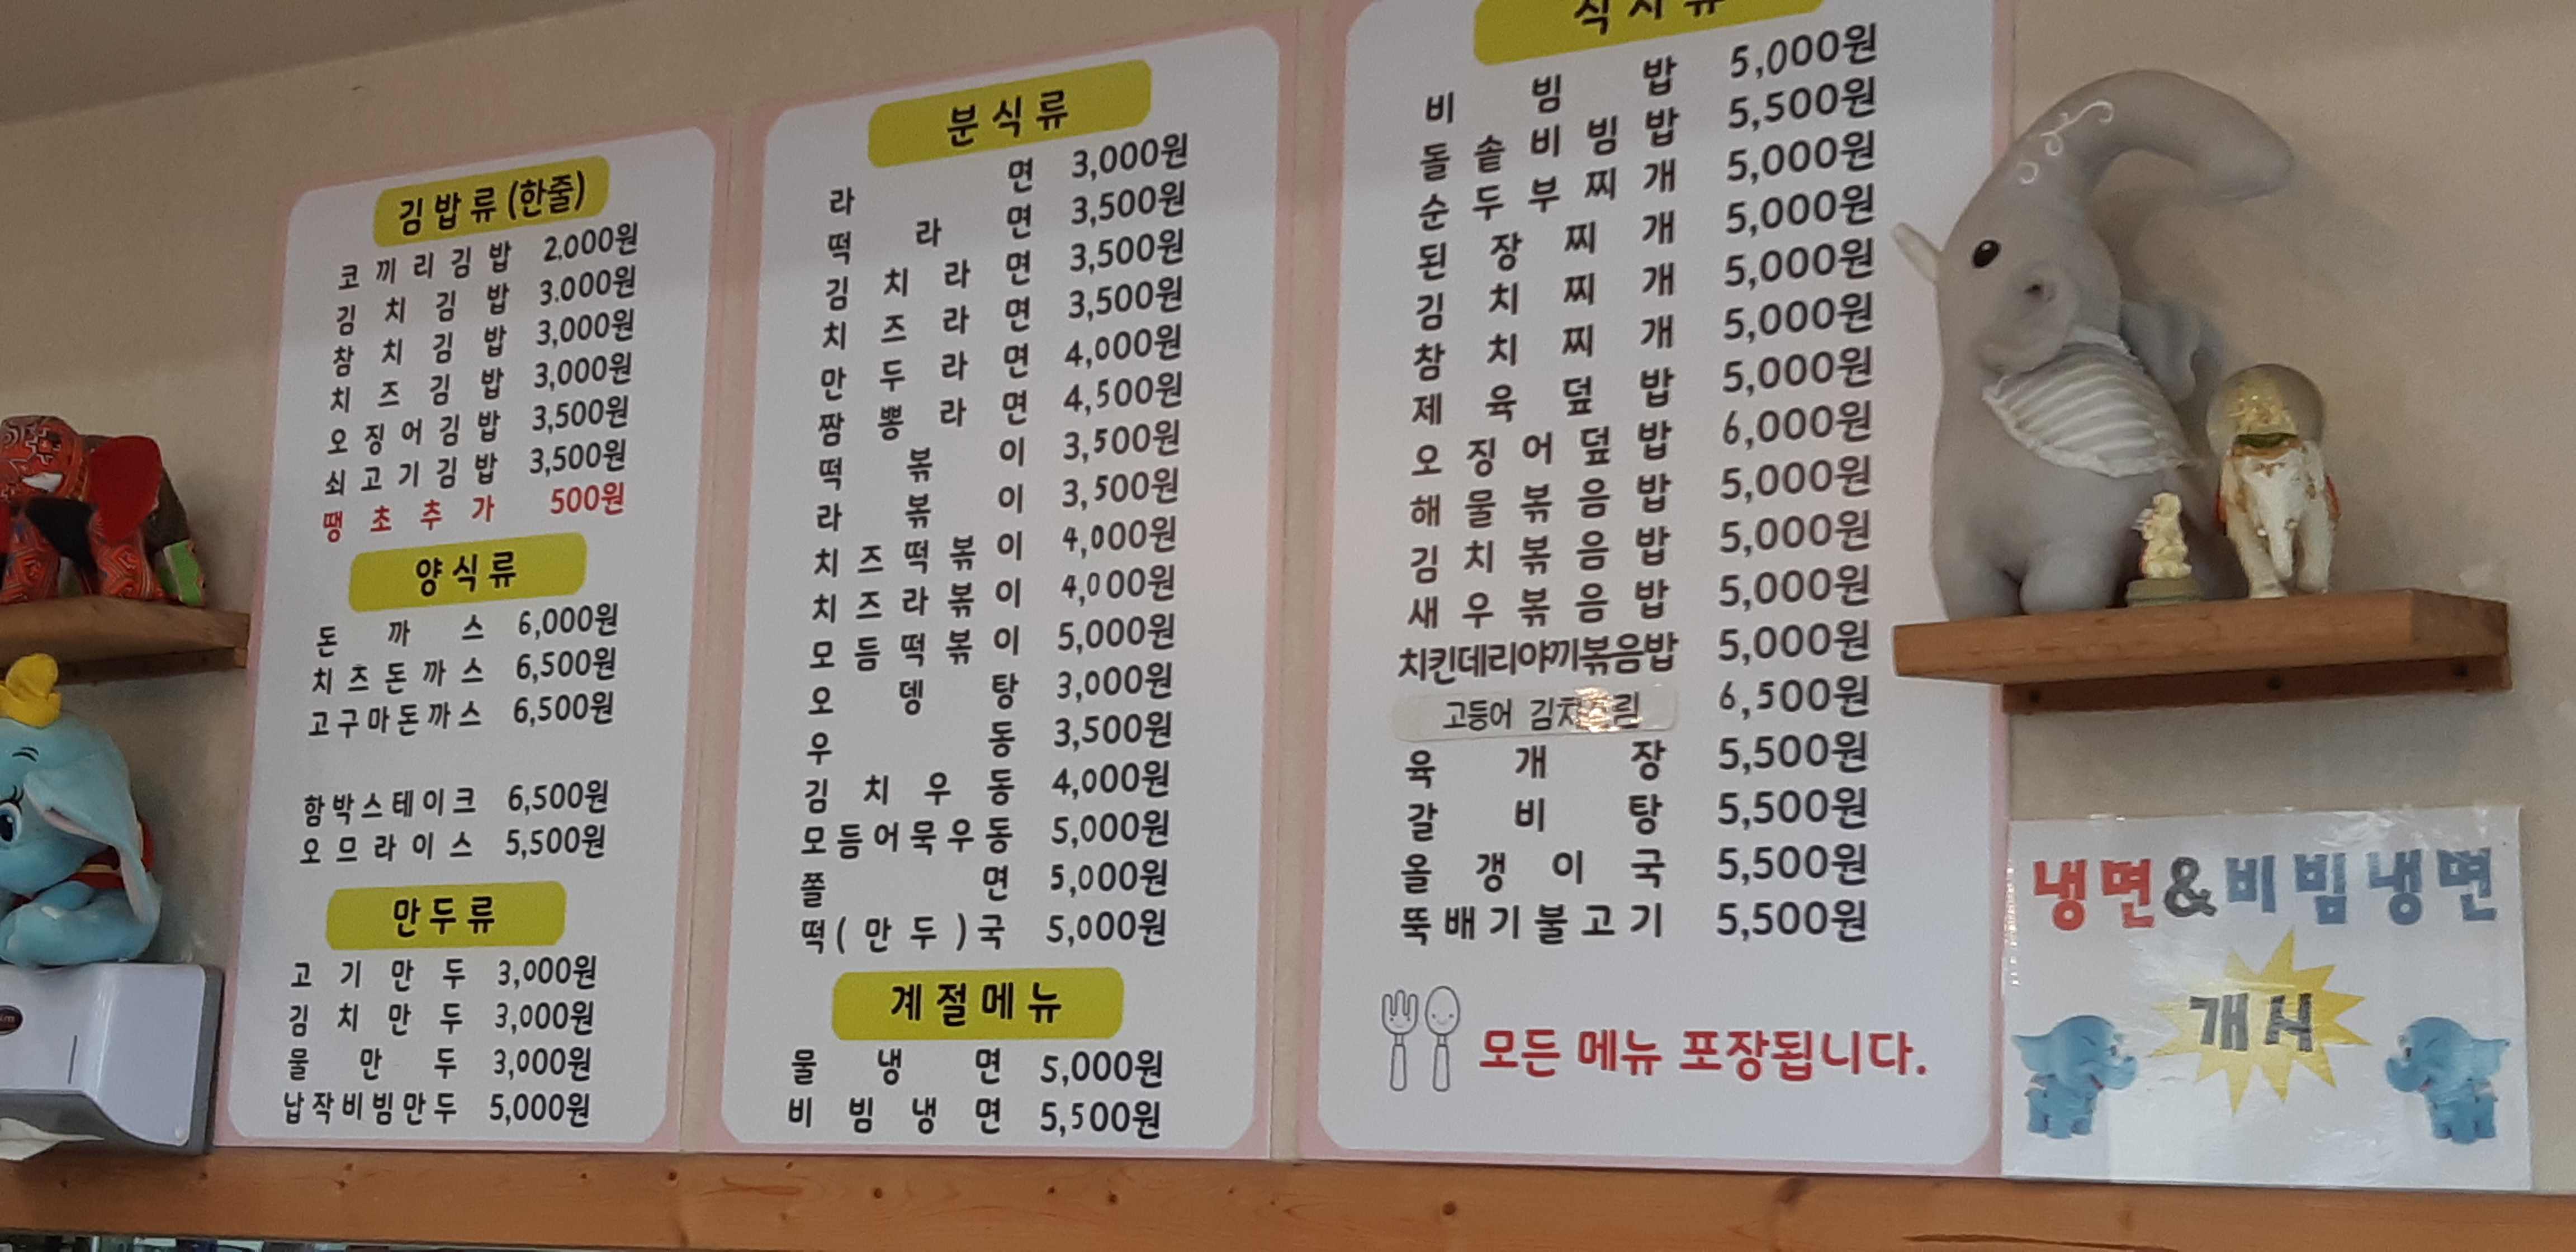 김밥류(한줄)
코끼리김밥 2.000원
김치김밥 3.000원
참치김밥 3,000원
치즈김밥 3,000원
오징어김밥 3,500원
쇠고기김밥 3,500원
땡초추가 500원
양식류
돈까스 6,000원
치즈돈까스 6,500원
고구마돈까스 6,500원
함박스테이크 6,500원
오므라이스 5,500원
만두류
고기만두 3,000원
김치만두 3,000원
물만두 3,000원
납작비빔만두 5,000원
분식류
라면 3,000원
떡라면 3,500원
김치라면 3,500원
치즈라면 3,500원
만두라면 4,000원
짬뽕라면 4,500원
떡볶이 3,500원
라볶이 3,500원
치즈떡볶이 4,000원
치즈라볶이 4,000원
모듬떡볶이 5,000원
오뎅탕 3,000원
우동 3,500원
김치우동 4,000원
모듬어묵우동 5,000원
쫄면 5,000원
떡(만두)국 5,000원
계절메뉴
물냉면 5,000원
비빔냉면 5,500원
식사류
비빔밥 5,000원
돌솥비빔밥 5,500원
순두부찌개 5,000원
된장찌개 5,000원
김치찌개 5,000원
참치찌개 5,000원
제육덮밥 5,000원
오징어덮밥 6,000원
해물볶음밥 5,000원
김치볶음밥 5,000원
새우볶음밥 5,000원
치킨데리야끼볶음밥 5,000원
고등어 김치조림 6,500원
육개장 5,500원
갈비탕 5,500원
올갱이국 5,500원
뚝배기불고기 5,500원
모든 메뉴 포장됩니다.
냉면&비빔냉면
개시